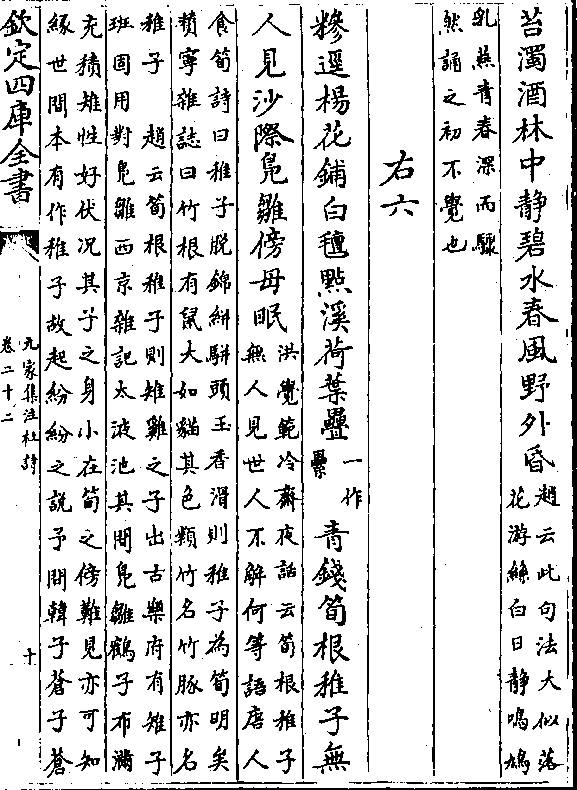 苔濁酒林中靜碧水春風野外昏趙云此句法大似落
花游絲白日靜鳴鳩
乳燕青春深而驟
然誦之初不覺也
右六
糝逕楊花鋪白氊點溪荷葉疊一作
纍青錢筍根稚子無
人見沙際鳬雛傍母眠洪覺範冷齋夜話云筍根稚子
無人見世人不解何等語唐人
食筍詩曰稚子脫錦綳駢頭玉香滑則稚子為筍明矣
贊寧雜誌曰竹根有鼠大如貓其色類竹名竹豚亦名
稚子　趙云筍根稚子則雉雞之子出古樂府有雉子
班固用對鳬雛西京雜記太液池其間鳬雛鶴子布滿
充積雉性好伏况其子之身小在筍之傍難見亦可知
緣世間本有作稚子故起紛紛之說予問韓子蒼子蒼
欽定四庫全書
九家集注杜詩
卷二十二
十